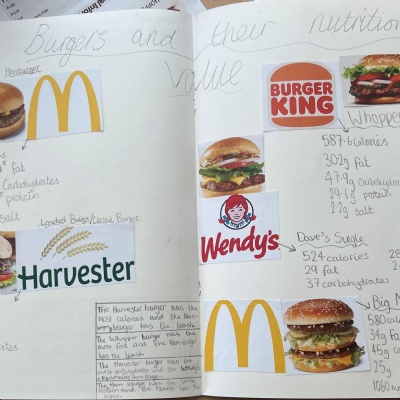 Burgers and their nutrition
Value
Hamburger
fat
Carbohydrates
protein
salt
Loaded Burger/Classic Burger
Harvester
The Harvester burger has the
most calories and the Ham-
burger has the least.
The Whopper burger has the
most fat and the hamburger
has the least.
The Harvester burger has the
more carbohydrates and the Wendy's
BURGER
KING
Whopper
587.6 calories
302g fat
47.9g carbohydrates
29.6g protein
2.2g salt
Wendy's
Dave's Single
524 calories
29 fat
37 carbohydrates
28
2
Big M
580 calo
34g fat
45g c
25g
1060 m